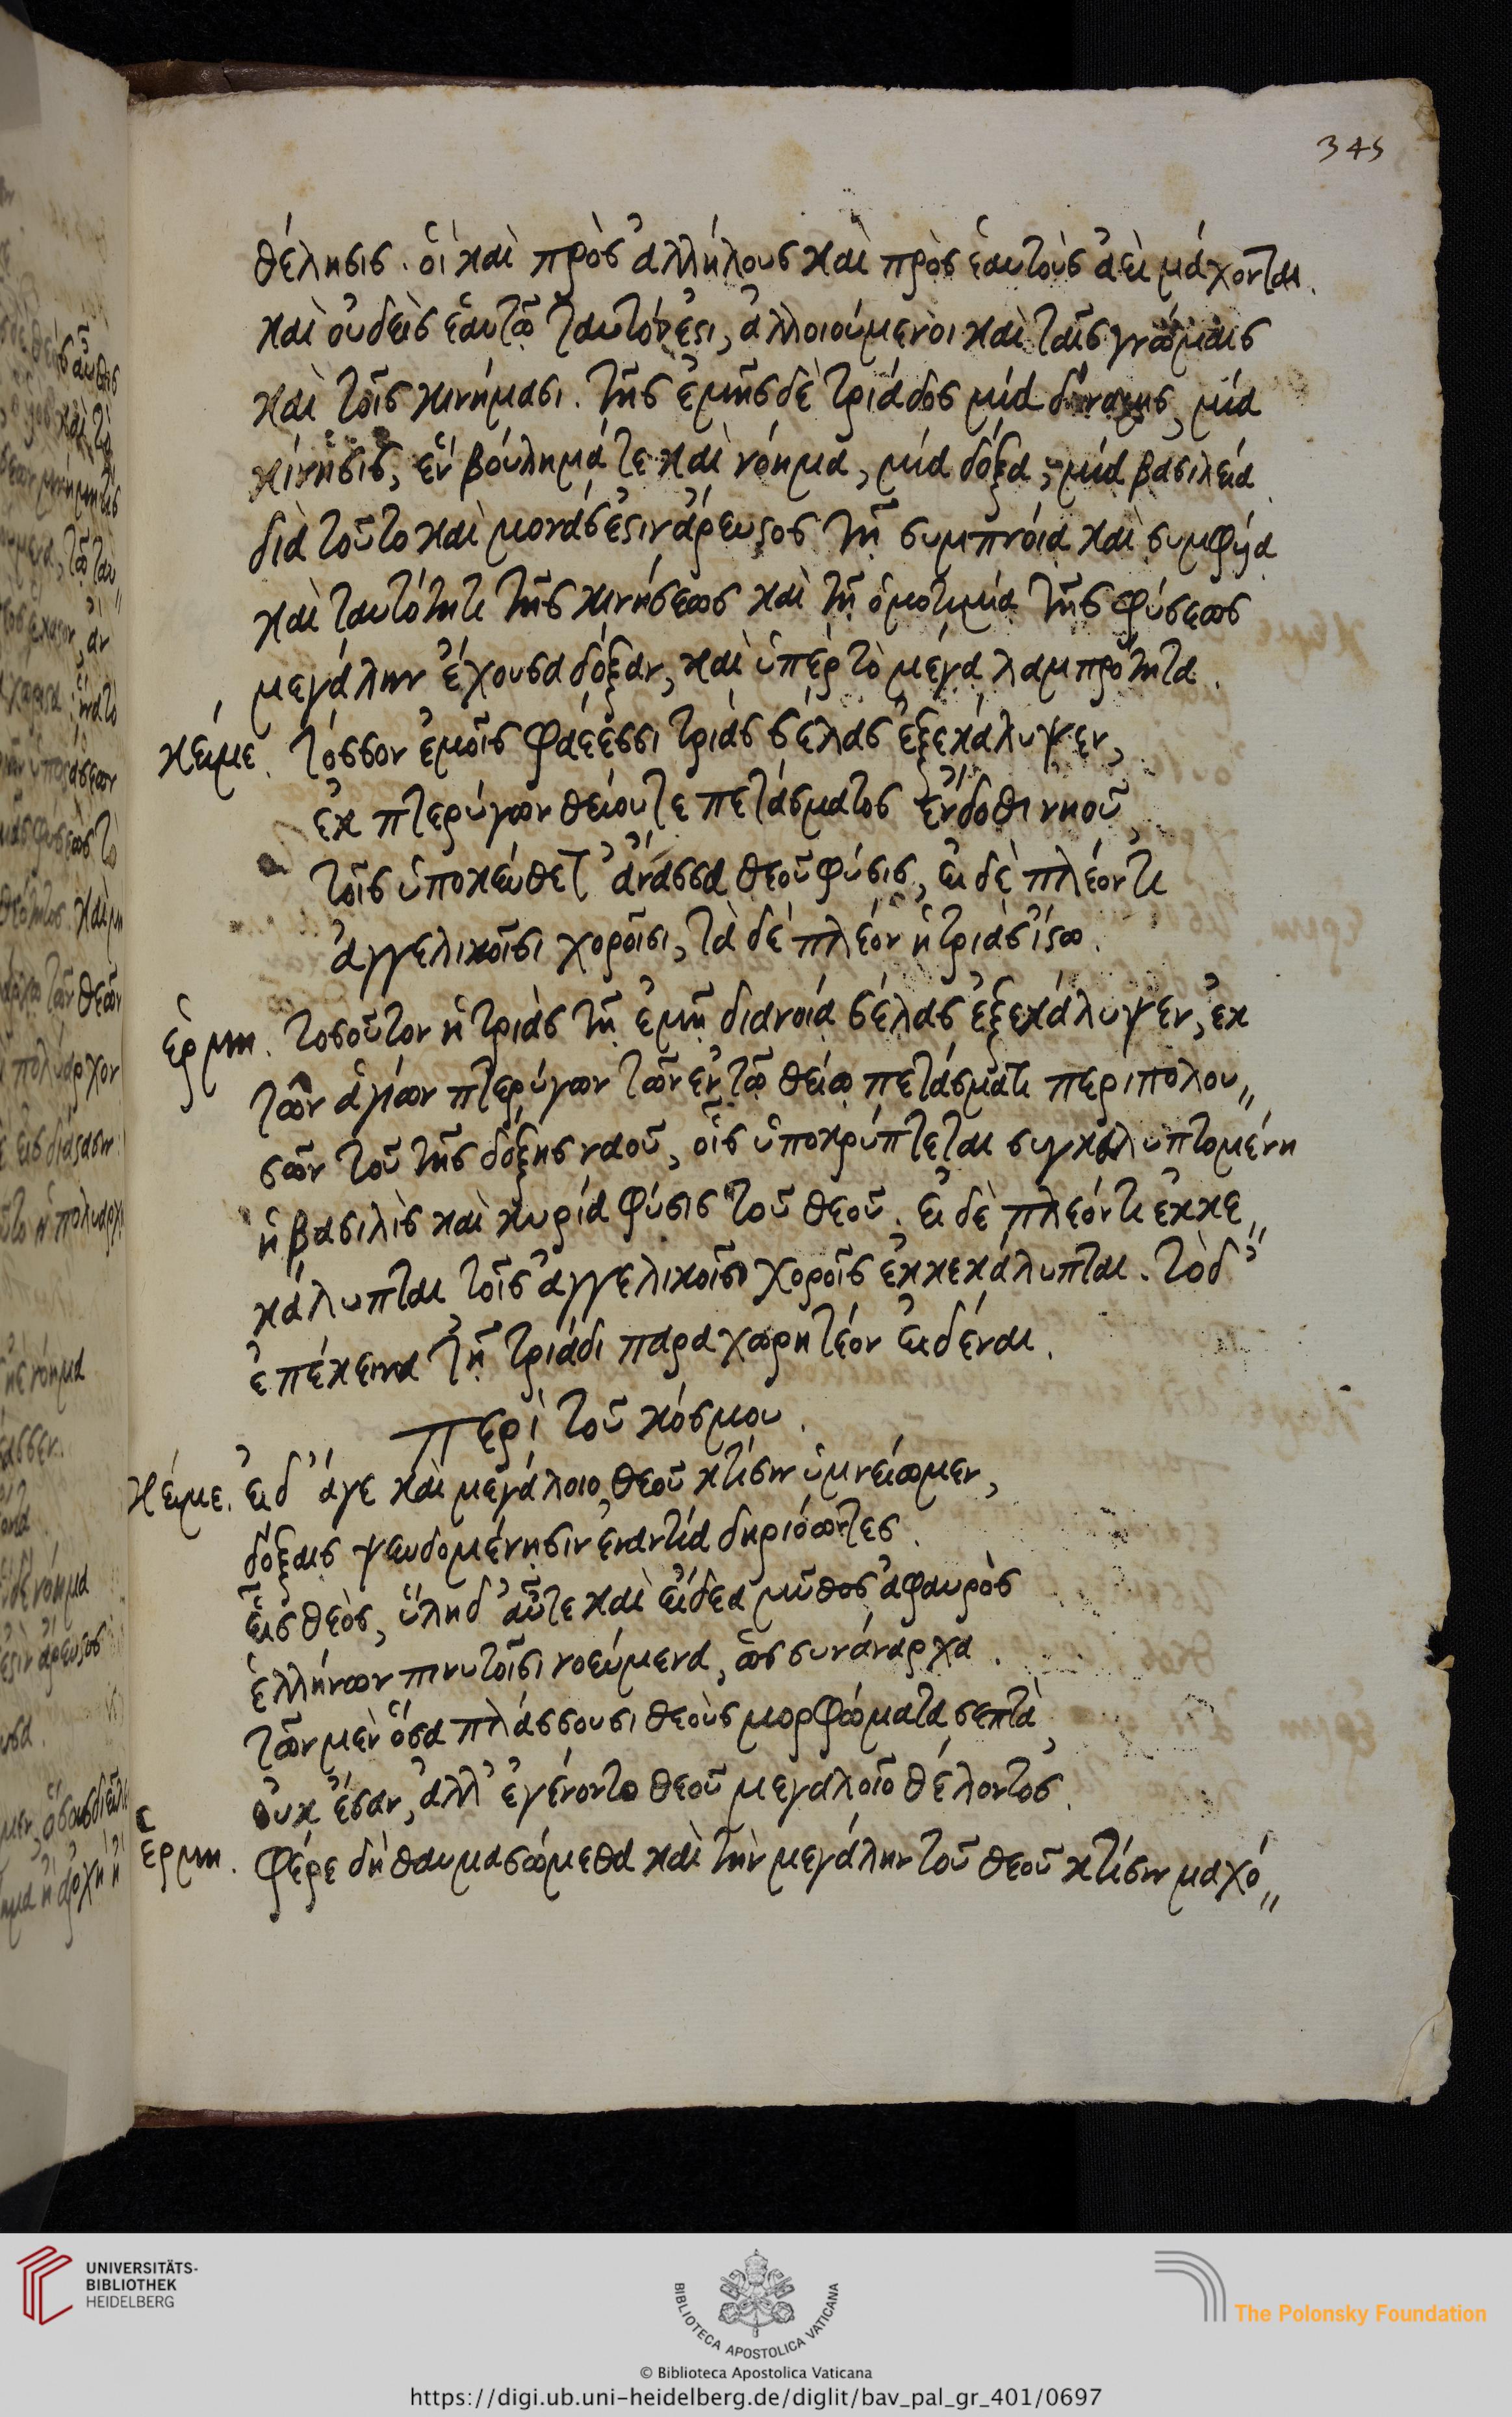 345
θέλησις. οἳ καὶ πρὸς ἀλλήλους καὶ πρὸς ἑαυτοὺς ἀεὶ μάχονται.
καὶ οὐδεὶς ἑαυτῷ ταυτόν ἐστι, ἀλλοιούμενοι καὶ ταῖς γνώμαις
καὶ τοῖς κινήμασι. τῆς ἐμῆς δὲ τριάδος μία δύναμις, μία
κίνησις, ἓν βούλημά τε καὶ νόημα, μία δόξα, μία βασιλεία
διὰ τοῦτο καὶ μονάς ἐστιν ἄρευστος τῇ συμπνοία καὶ συμφυΐα
καὶ ταυτότητι τῆς κινήσεως καὶ τῇ ὁμοτιμία τῆς φύσεως
μεγάλην ἔχουσα δόξαν, καὶ ὑπὲρ τὸ μέγα λαμπρότητα.
κείμε. τόσσον ἐμοῖς φαέεσσι τριὰς σέλας ἐξεκάλυψεν,
ἐκ πτερύγων θείου τε πετάσματος ἔνδοθι νηοῦ
τοῖς ὑποκεύθετ' ἄνασσα θεοῦ φύσις, εἰ δὲ πλέον τι
ἀγγελικοῖσι χοροῖσι, τὰ δὲ πλέον ἡ τριὰς ἴστω.
ἑρμη. τοσοῦτον ἡ τριὰς τῇ ἐμῇ διανοία σέλας ἐξεκάλυψεν, ἐκ
τῶν ἁγίων πτερύγων τῶν ἐν τῷ θείῳ πετάσματι περιπολου
σῶν τοῦ τῆς δόξης ναοῦ, οἷς ὑποκρύπτεται συγκαλυπτομένη
ἡ βασιλὶς καὶ κυρία φύσις τοῦ θεοῦ. εἰ δὲ πλέον τι ἐκκε
κάλυπται τοῖς ἀγγελικοῖς χοροῖς ἐκκεκάλυπται. τὸ δ'
ἐπέκεινα τῇ τριάδι παραχωρητέον εἰδέναι.
Περὶ τοῦ κόσμου.
κείμε. εἰ δ' ἄγε καὶ μεγάλοιο θεοῦ κτίσιν ὑμνείωμεν,
δόξαις ψευδομένησιν ἐναντία δηριόωντες.
εἷς θεὸς, ὕλη δ' αὖτε καὶ εἴδεα μῦθος ἀφαυρὸς
ἑλλήνων πινυτοῖσι νοεύμενα, ὡς συνάναρχα.
τῶν μὲν ὅσα πλάσσουσι θεοὺς μορφώματα σεπτὰ
οὐκ ἔσαν, ἀλλ' ἐγένοντο θεοῦ μεγαλοῖο θέλοντος.
Ἑρμη. φέρε δὴ θαυμασώμεθα καὶ τὴν μεγάλην τοῦ θεοῦ κτίσιν μαχό
UNIVERSITÄTS-
BIBLIOTHEK
HEIDELBERG
BIBLIOTECA APOSTOLICA VATICANA
The Polonsky Foundation
© Biblioteca Apostolica Vaticana
https://digi.ub.uni-heidelberg.de/diglit/bav_pal_gr_401/0697